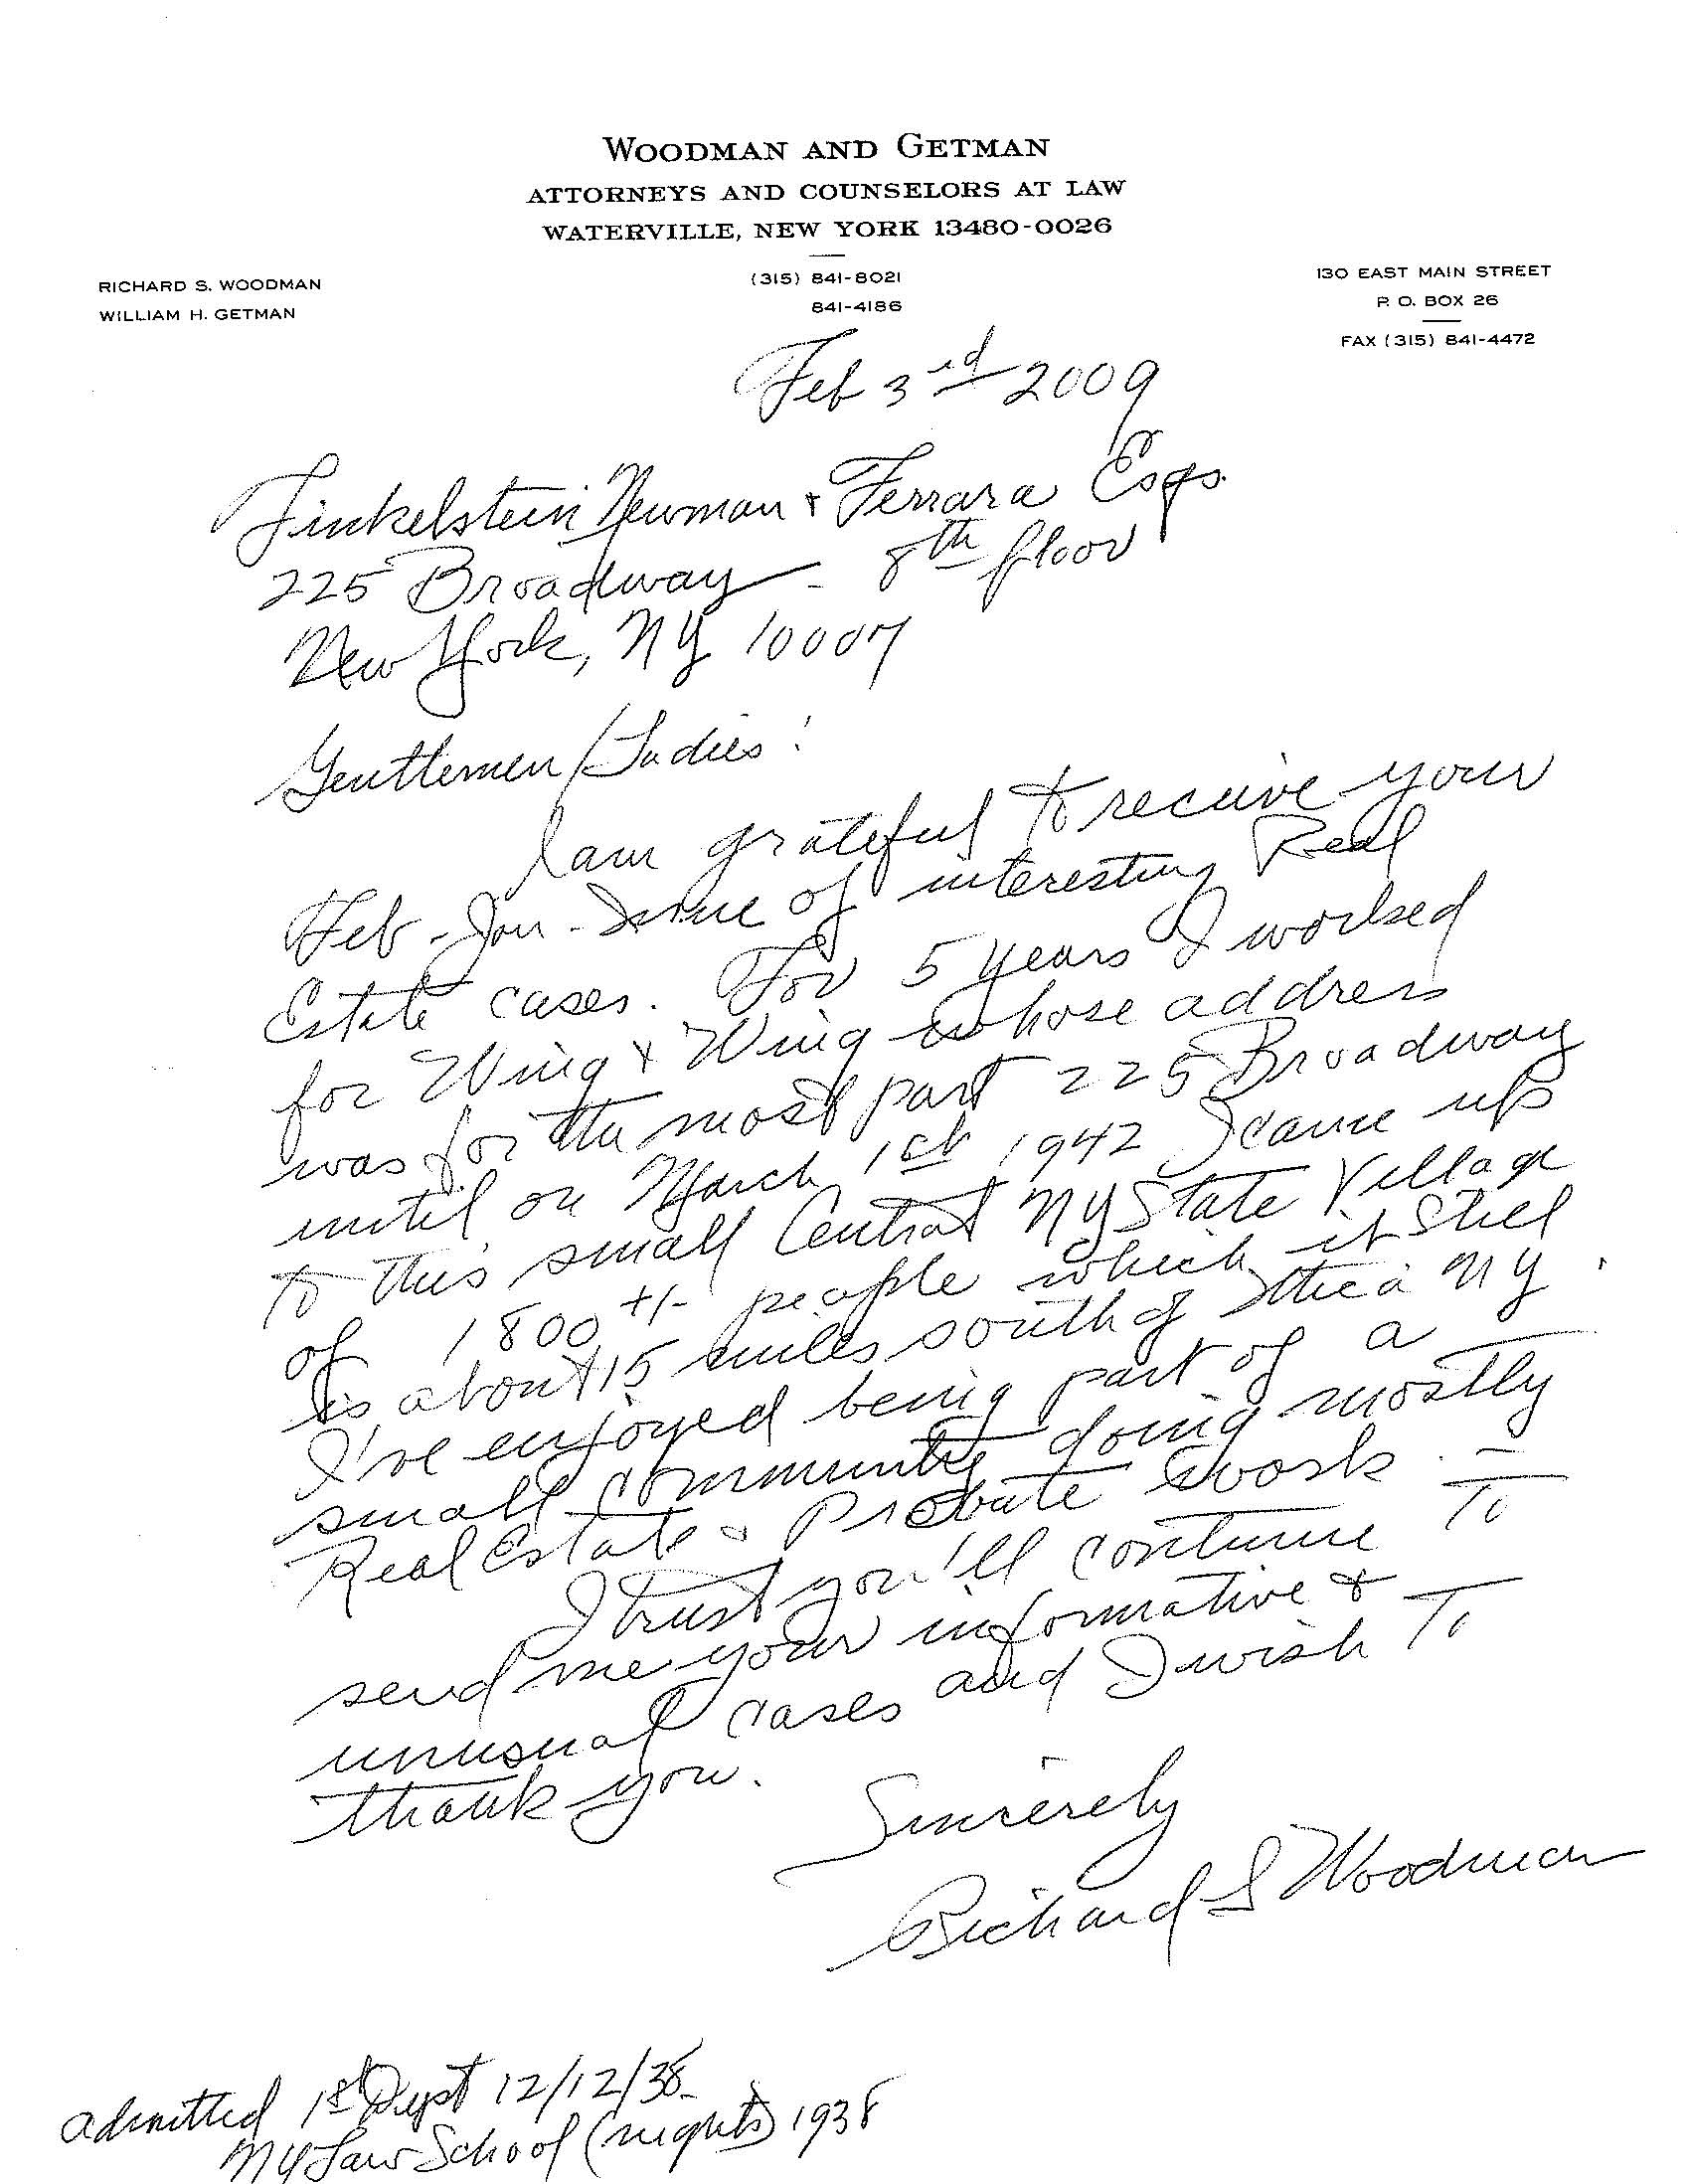 WOODMAN AND GETMAN
ATTORNEYS AND COUNSELORS AT LAW
WATERVILLE, NEW YORK 13480-0026
RICHARD S. WOODMAN
WILLIAM H. GETMAN
(315) 841-8021
841-4186
130 EAST MAIN STREET
P. O. BOX 26
FAX (315) 841-4472
Feb 3rd 2009
Finkelstein Newman & Ferrara Esqs.
225 Broadway - 8th floor
New York, NY 10007
Gentlemen/Ladies:
I am grateful to receive your
Feb-Jan-Issue of interesting Real
Estate cases. For 5 years I worked
for Wing & Wing whose address
was for the most part 225 Broadway
until on March 1st 1942 I came up
to this small Central NY State Village
of 1800 +/- people which it still
is about 15 miles south of Utica NY.
I've enjoyed being part of a
small community doing mostly
Real Estate & Probate work.
I trust you'll continue To
send me your informative &
unusual cases and I wish To
thank you.
Sincerely
Richard S Woodman
admitted 1st Dept 12/12/38
NY Law School (nights) 1938